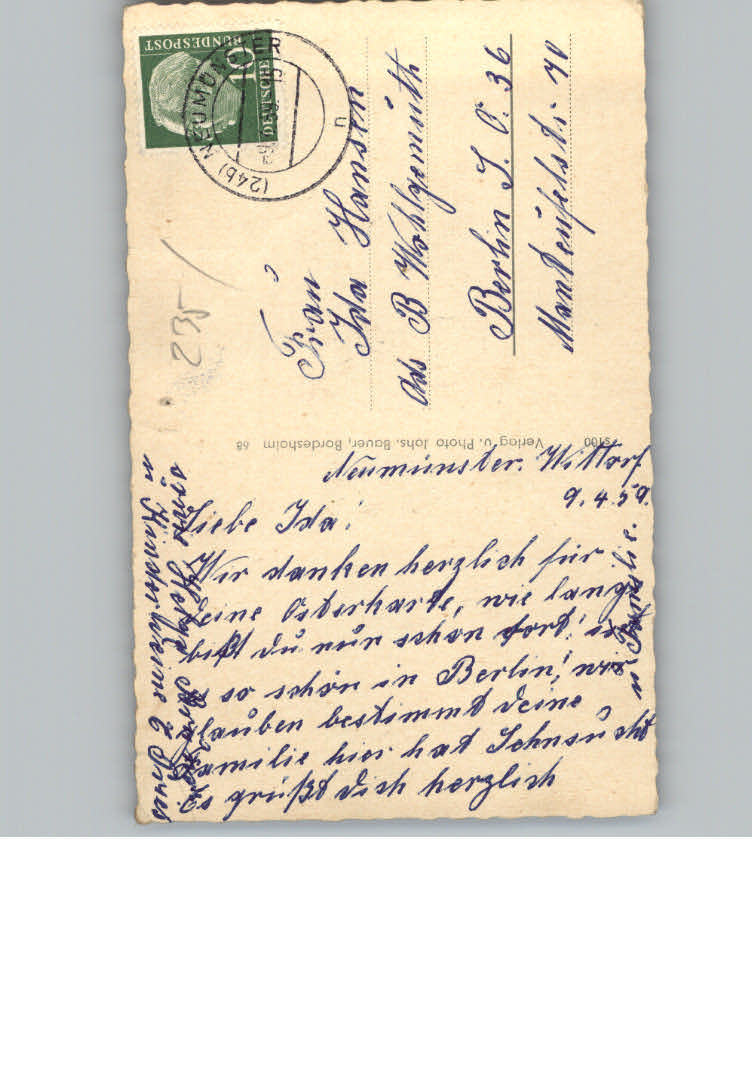 Neumünster. Wittorf
9.4.59.
Liebe Ida!
Wir danken herzlich für
deine Osterkarte, wie lange
bist du nur schon fort! ist
es so schön in Berlin! wir
glauben bestimmt deine
Familie hier hat Sehnsucht
Es grüßt dich herzlich
u Familie.
7s100 Verlag u. Photo Johs. Bauer, Bordesholm 68
Frau
Ida Hansen
B Wohlgemuth
Berlin S. O. 36
Manteufelstr. 40
235
DEUTSCHE
BUNDESPOST
10
(24b) NEUMÜNSTER
u